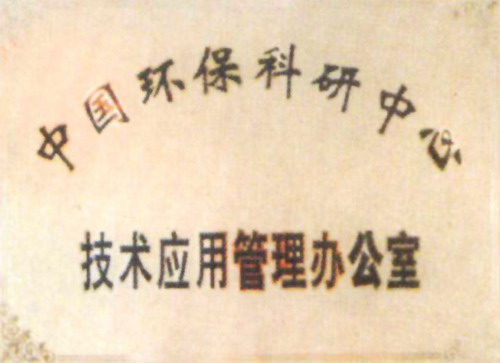 中国环保科研中心
技术应用管理办公室